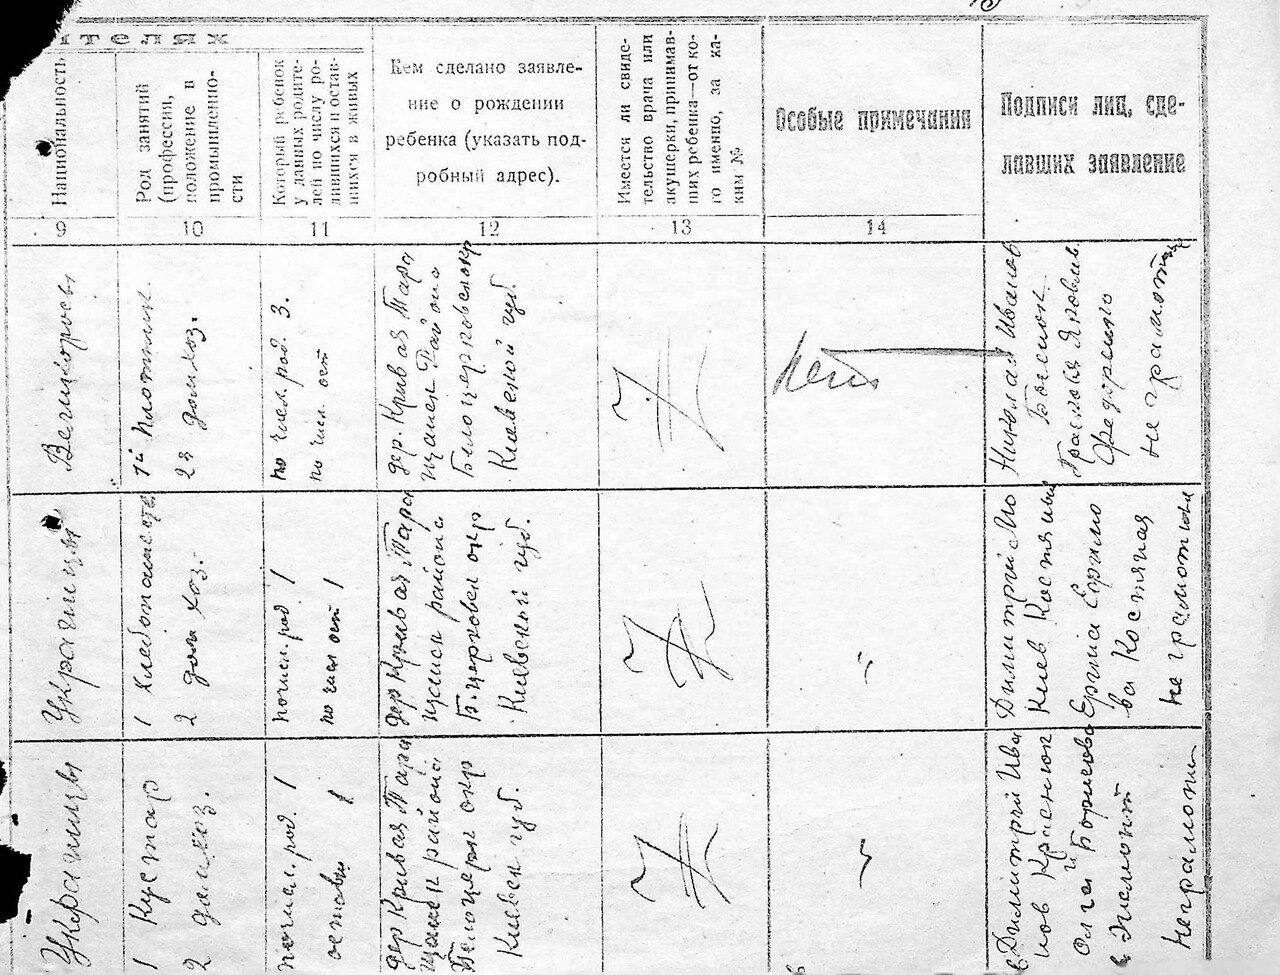 ИТЕЛЯХ
Национальность
Род занятий
(профессия,
положение в
промышленно-
сти
Который ребенок
у данных родите-
лей по числу ро-
дившихся и остав-
шихся в живых
Кем сделано заявле-
ние о рождении
ребенка (указать под-
робный адрес).
Имеется ли свиде-
тельство врача или
акушерки, принимав-
ших ребенка—от ко-
го именно, за ка-
ким №
Особые примечания
Подписи лиц, сде-
лавших заявление
9
10
11
12
13
14
Великороссы
Плотник
2я домхоз.
по числ. род. 3.
по числ. ост
дер. Кривая Тара
щанск Района
Белоцерковск окр
Киевской губ.
Нет
Николай Иванов
Яковлев.
Федоренко
не грамотны
Украинцы
1 Хлебопашество
2 дом хоз.
по числ. род 1
по числ ост 1
дер Кривая Тара
щанск района
Б.церковск окр
Киевской губ.
Димитрий
Костяный
Ефимо
ва Костяная
не грамотны
Украинцы
1 Кустар
2 домхоз.
по числ. род. 1
дер Кривая Тара
щанск района
Белоцерк окр
Киевск губ.
Димитрий Ива
нов Краснюк
и
Ольга Борисова
неграмотн